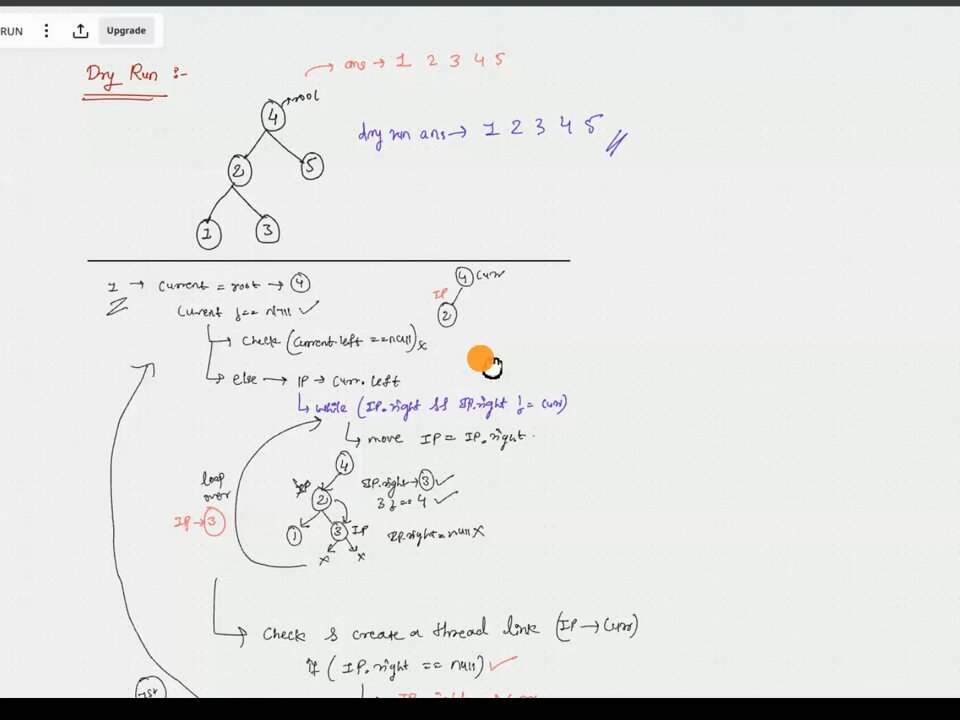 RUN
Upgrade
Dry Run :-
ans → 1 2 3 4 5
root
4
dry run ans → 1 2 3 4 5
2
5
1
3
1 → Current = root → 4
4 Curr
IP
2
Current != null ✓
Check (Current.left == null) x
else → IP → Curr.left
while (IP.right && IP.right != Curr)
move IP = IP.right
4
loop
over
IP → 3
IP
2
IP.right → 3 ✓
3 != 4 ✓
1
3
IP
IP.right = null X
x
x
Check & create a thread link (IP → Curr)
if (IP.right == null) ✓